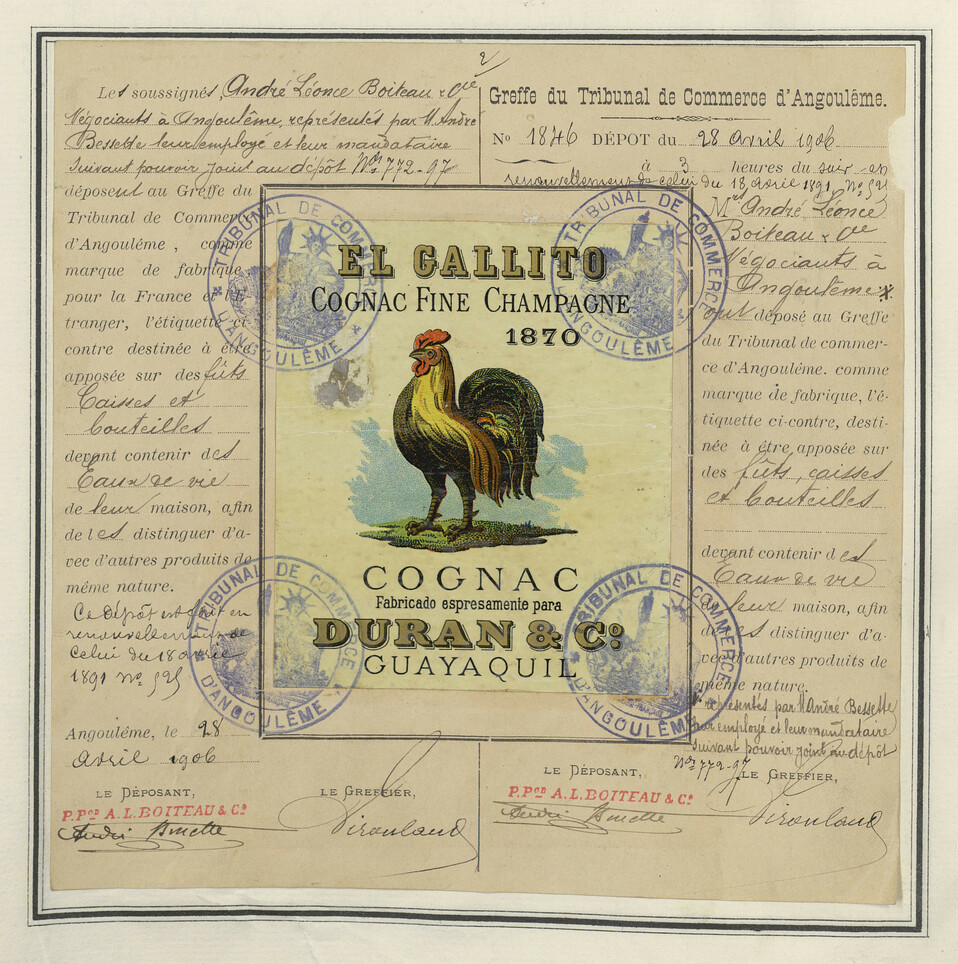 2
Les soussignés, André Léonce Boiteau & Cie
Négociants à Angoulême, représentés par M. André
Bessette leur employé et leur mandataire
suivant pouvoir joint au dépôt Nos 772-97
déposent au Greffe du
Tribunal de Commerce
d'Angoulême, comme
marque de fabrique
pour la France et l'E-
tranger, l'étiquette ci-
contre destinée à être
apposée sur des fûts
Caisses et
bouteilles
devant contenir des
Eaux de vie
de leur maison, afin
de les distinguer d'a-
vec d'autres produits de
même nature.
Ce dépôt est fait en
renouvellement de
celui du 18 avril
1891 No 525
Angoulême, le 28
avril 1906
LE DÉPOSANT,
P.Pon A.L. BOITEAU & Co
André Bessette
LE GREFFIER,
Greffe du Tribunal de Commerce d'Angoulême.
No 1846 DÉPOT du 28 avril 1906
à 3 heures du soir en
renouvellement de celui du 18 avril 1891 No 525
Mrs André Léonce
Boiteau & Cie
Négociants à
Angoulême x
ont déposé au Greffe
du Tribunal de commer-
ce d'Angoulême. comme
marque de fabrique, l'é-
tiquette ci-contre, desti-
née à être apposée sur
des fûts, caisses
et bouteilles
devant contenir des
Eaux de vie
de leur maison, afin
de les distinguer d'a-
vec d'autres produits de
même nature.
x représentés par M André Bessette
leur employé et leur mandataire
suivant pouvoir joint au dépôt
Nos 772-97
LE DÉPOSANT,
P.Pon A.L. BOITEAU & Co
André Bessette
LE GREFFIER,
EL GALLITO
COGNAC FINE CHAMPAGNE
1870
COGNAC
Fabricado espresamente para
DURAN & Co.
GUAYAQUIL
TRIBUNAL DE COMMERCE
* D'ANGOULÊME *
TRIBUNAL DE COMMERCE
* D'ANGOULÊME *
TRIBUNAL DE COMMERCE
* D'ANGOULÊME *
TRIBUNAL DE COMMERCE
* D'ANGOULÊME *